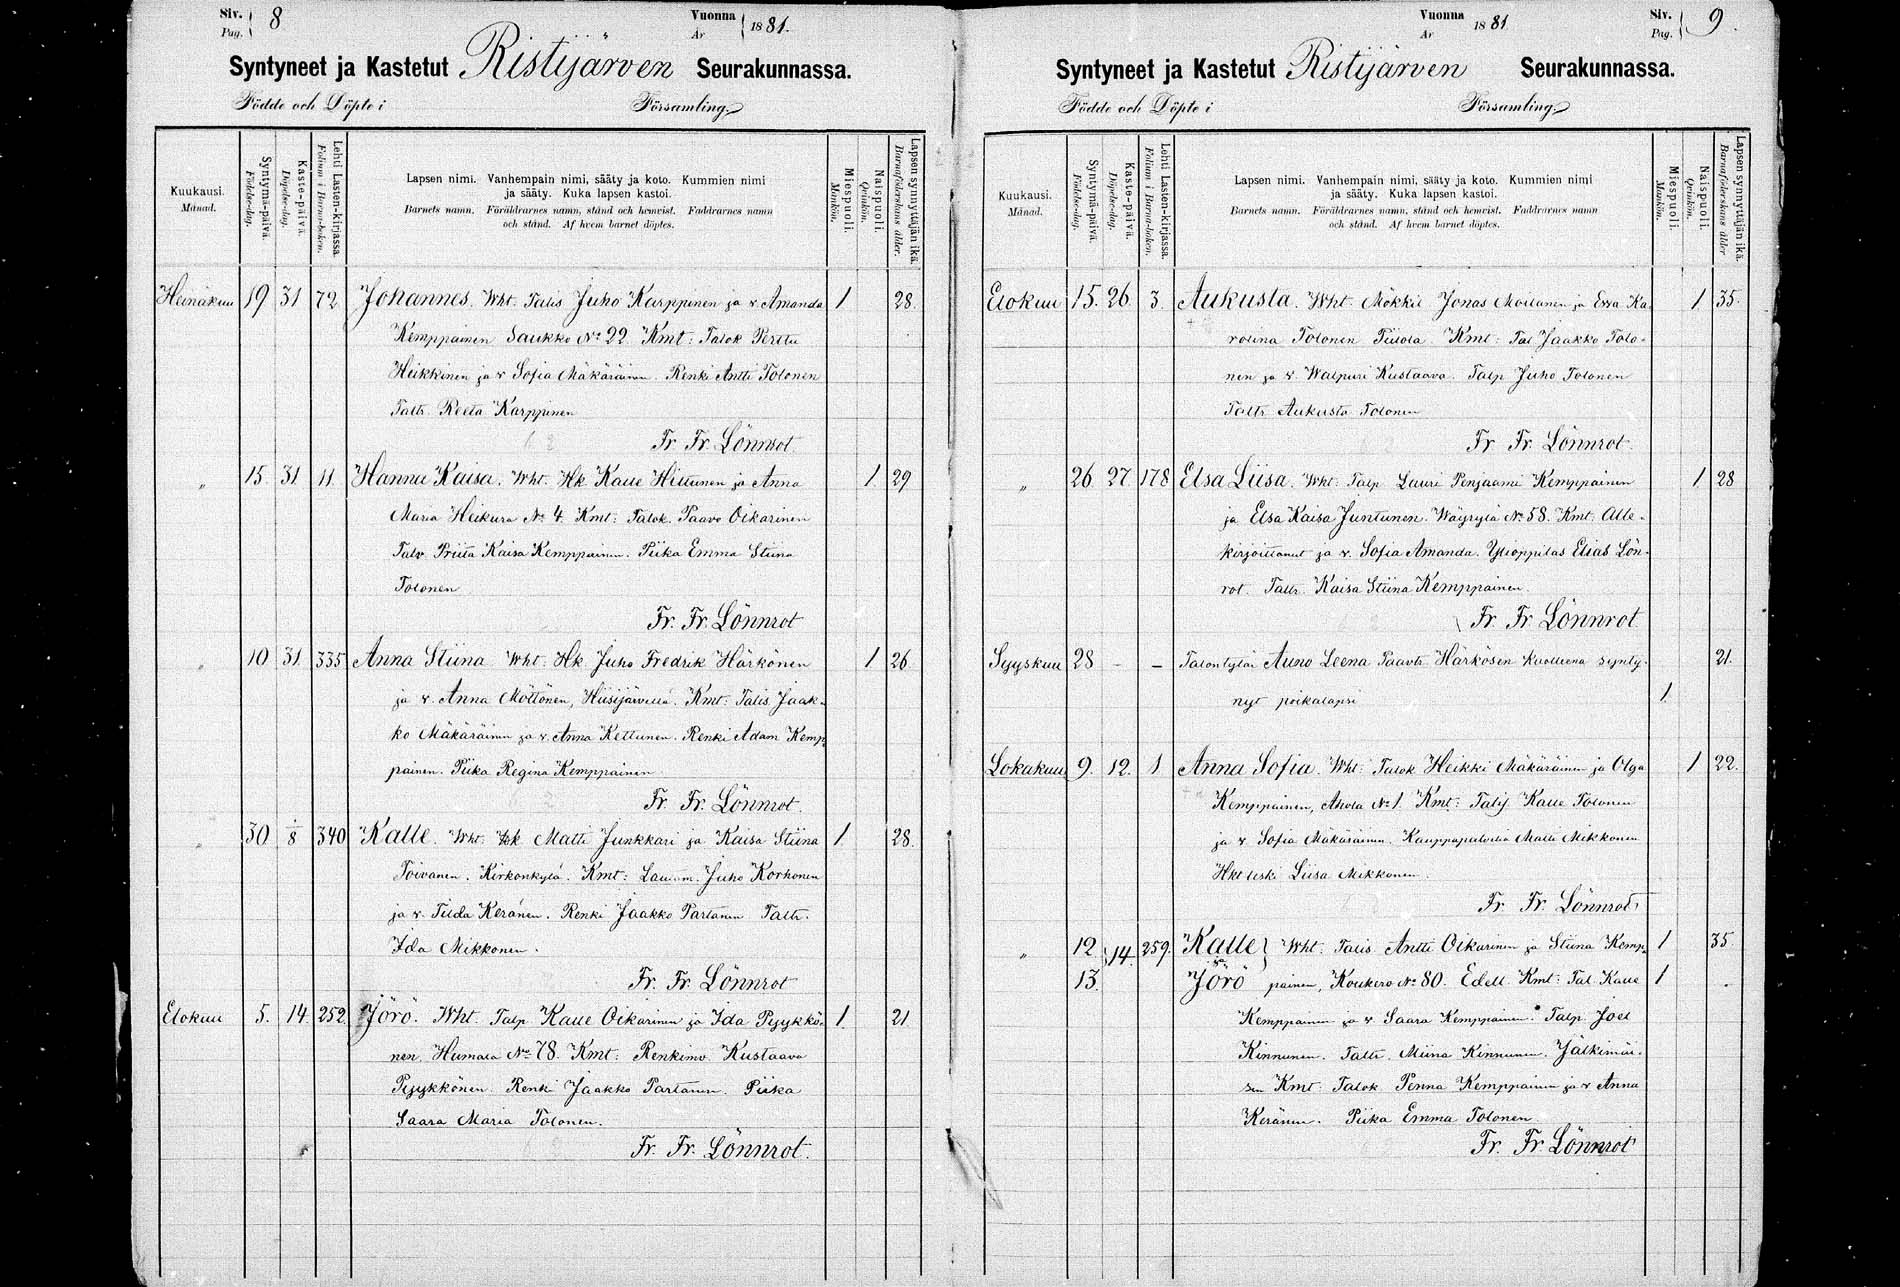 Siv. Pag. 8 Vuonna År 1881.
Syntyneet ja Kastetut Ristijärven Seurakunnassa.
Födde och Döpte i Församling.
Kuukausi. Månad.
Syntymä-päivä. Födelse-dag.
Kaste-päivä. Döpelse-dag.
Lehti Lasten-kirjassa. Folium i Barna-boken.
Lapsen nimi. Vanhempain nimi, sääty ja koto. Kummien nimi
ja sääty. Kuka lapsen kastoi.
Barnets namn. Föräldrarnes namn, stånd och hemvist. Faddrarnes namn
och stånd. Af hvem barnet döptes.
Miespuoli. Mankön.
Naispuoli. Qvinkön.
Lapsen synnyttäjän ikä. Barnaföderskans ålder.
Heinäkuu 19 31 72 Johannes. Wht. Talis Juho Karppinen ja v. Amanda 1 28.
Kemppainen Saukko No 22. Kmt: Talok Perttu
Heikkinen ja v Sofia Mäkäräinen. Renki Antti Tolonen
Taltr. Reeta Karppinen
Fr. Fr. Lönnrot.
" 15. 31 11. Hanna Kaisa. Wht. Hk Kalle Hiltunen ja Anna 1 29
Maria Heikura No 4. Kmt: Talok. Paavo Oikarinen
Talv Priita Kaisa Kemppainen. Piika Emma Stiina
Tolonen
Fr. Fr. Lönnrot
" 10 31. 335 Anna Stiina Wht. Hk Juho Fredrik Härkönen 1 26.
ja v. Anna Möttönen, Hiisijärvellä. Kmt: Talis. Jaak-
ko Mäkäräinen ja v. Anna Kettunen. Renki Adam Kemp-
painen. Piika Regina Kemppainen
Fr. Fr. Lönnrot.
" 30 1/8 340 Kalle. Wht. Hk Matti Junkkari ja Kaisa Stiina 1. 28.
Toivanen. Kirkonkylä. Kmt: Lautm. Juho Korhonen
ja v. Tilda Keränen. Renki Jaakko Partanen Taltr.
Ida Mikkonen.
Fr. Fr. Lönnrot
Elokuu 5. 14. 252 Jörö. Wht. Talp. Kalle Oikarinen ja Ida Pyykkö- 1. 21
nen, Humala No 78. Kmt: Renkimv. Kustaava
Pyykkönen. Renki Jaakko Partanen. Piika
Saara Maria Tolonen.
Fr. Fr. Lönnrot.
Vuonna År 1881 Siv. Pag. 9.
Syntyneet ja Kastetut Ristijärven Seurakunnassa.
Födde och Döpte i Församling.
Kuukausi. Månad.
Syntymä-päivä. Födelse-dag.
Kaste-päivä. Döpelse-dag.
Lehti Lasten-kirjassa. Folium i Barna-boken.
Lapsen nimi. Vanhempain nimi, sääty ja koto. Kummien nimi
ja sääty. Kuka lapsen kastoi.
Barnets namn. Föräldrarnes namn, stånd och hemvist. Faddrarnes namn
och stånd. Af hvem barnet döptes.
Miespuoli. Mankön.
Naispuoli. Qvinkön.
Lapsen synnyttäjän ikä. Barnaföderskans ålder
Elokuu 15. 26. 3. Aukusta. Wht. Mökkil Jonas Moilanen ja Eeva Ka- 1 35.
rolina Tolonen Piilola. Kmt: Tal Jaakko Tolo-
nen ja v. Walpuri Kustaava. Talp Juho Tolonen
Taltr Aukusta Tolonen
Fr Fr Lönnrot.
" 26. 27 178 Elsa Liisa. Wht. Talp Lauri Penjaami Kemppainen 1 28
ja Elsa Kaisa Juntunen. Wäyrylä No 58. Kmt: Alle-
kirjoittanut ja v. Sofia Amanda. Ylioppilas Elias Lön-
rot. Taltr. Kaisa Stiina Kemppainen.
Fr. Fr Lönnrot
Syyskuu 28 - - Talontytär Auno Leena Paavtr. Härkösen kuolleena synty- 21.
nyt poikalapsi 1.
Lokakuu 9. 12. 1 Anna Sofia. Wht: Talok Heikki Mäkäräinen ja Olga 1 22.
Kemppainen, Ahola No 1. Kmt: Talis Kalle Tolonen
ja v Sofia Mäkäräinen. Kauppapalvelia Matti Mikkonen
Hkt leski Liisa Mikkonen.
Fr. Fr. Lönnrot
" 12 14. 259. Kalle Wht. Talis Antti Oikarinen ja Stiina Kemp- 1 35
13. ja Jörö painen, Koukero No 80. Edell Kmt: Tal. Kalle 1
Kemppainen ja v. Saara Kemppainen. Talp. Joel
Kinnunen. Taltr. Miina Kinnunen. Jälkimäi-
sen Kmt: Talok Penna Kemppainen ja v Anna
Keränen. Piika Emma Tolonen
Fr. Fr. Lönnrot